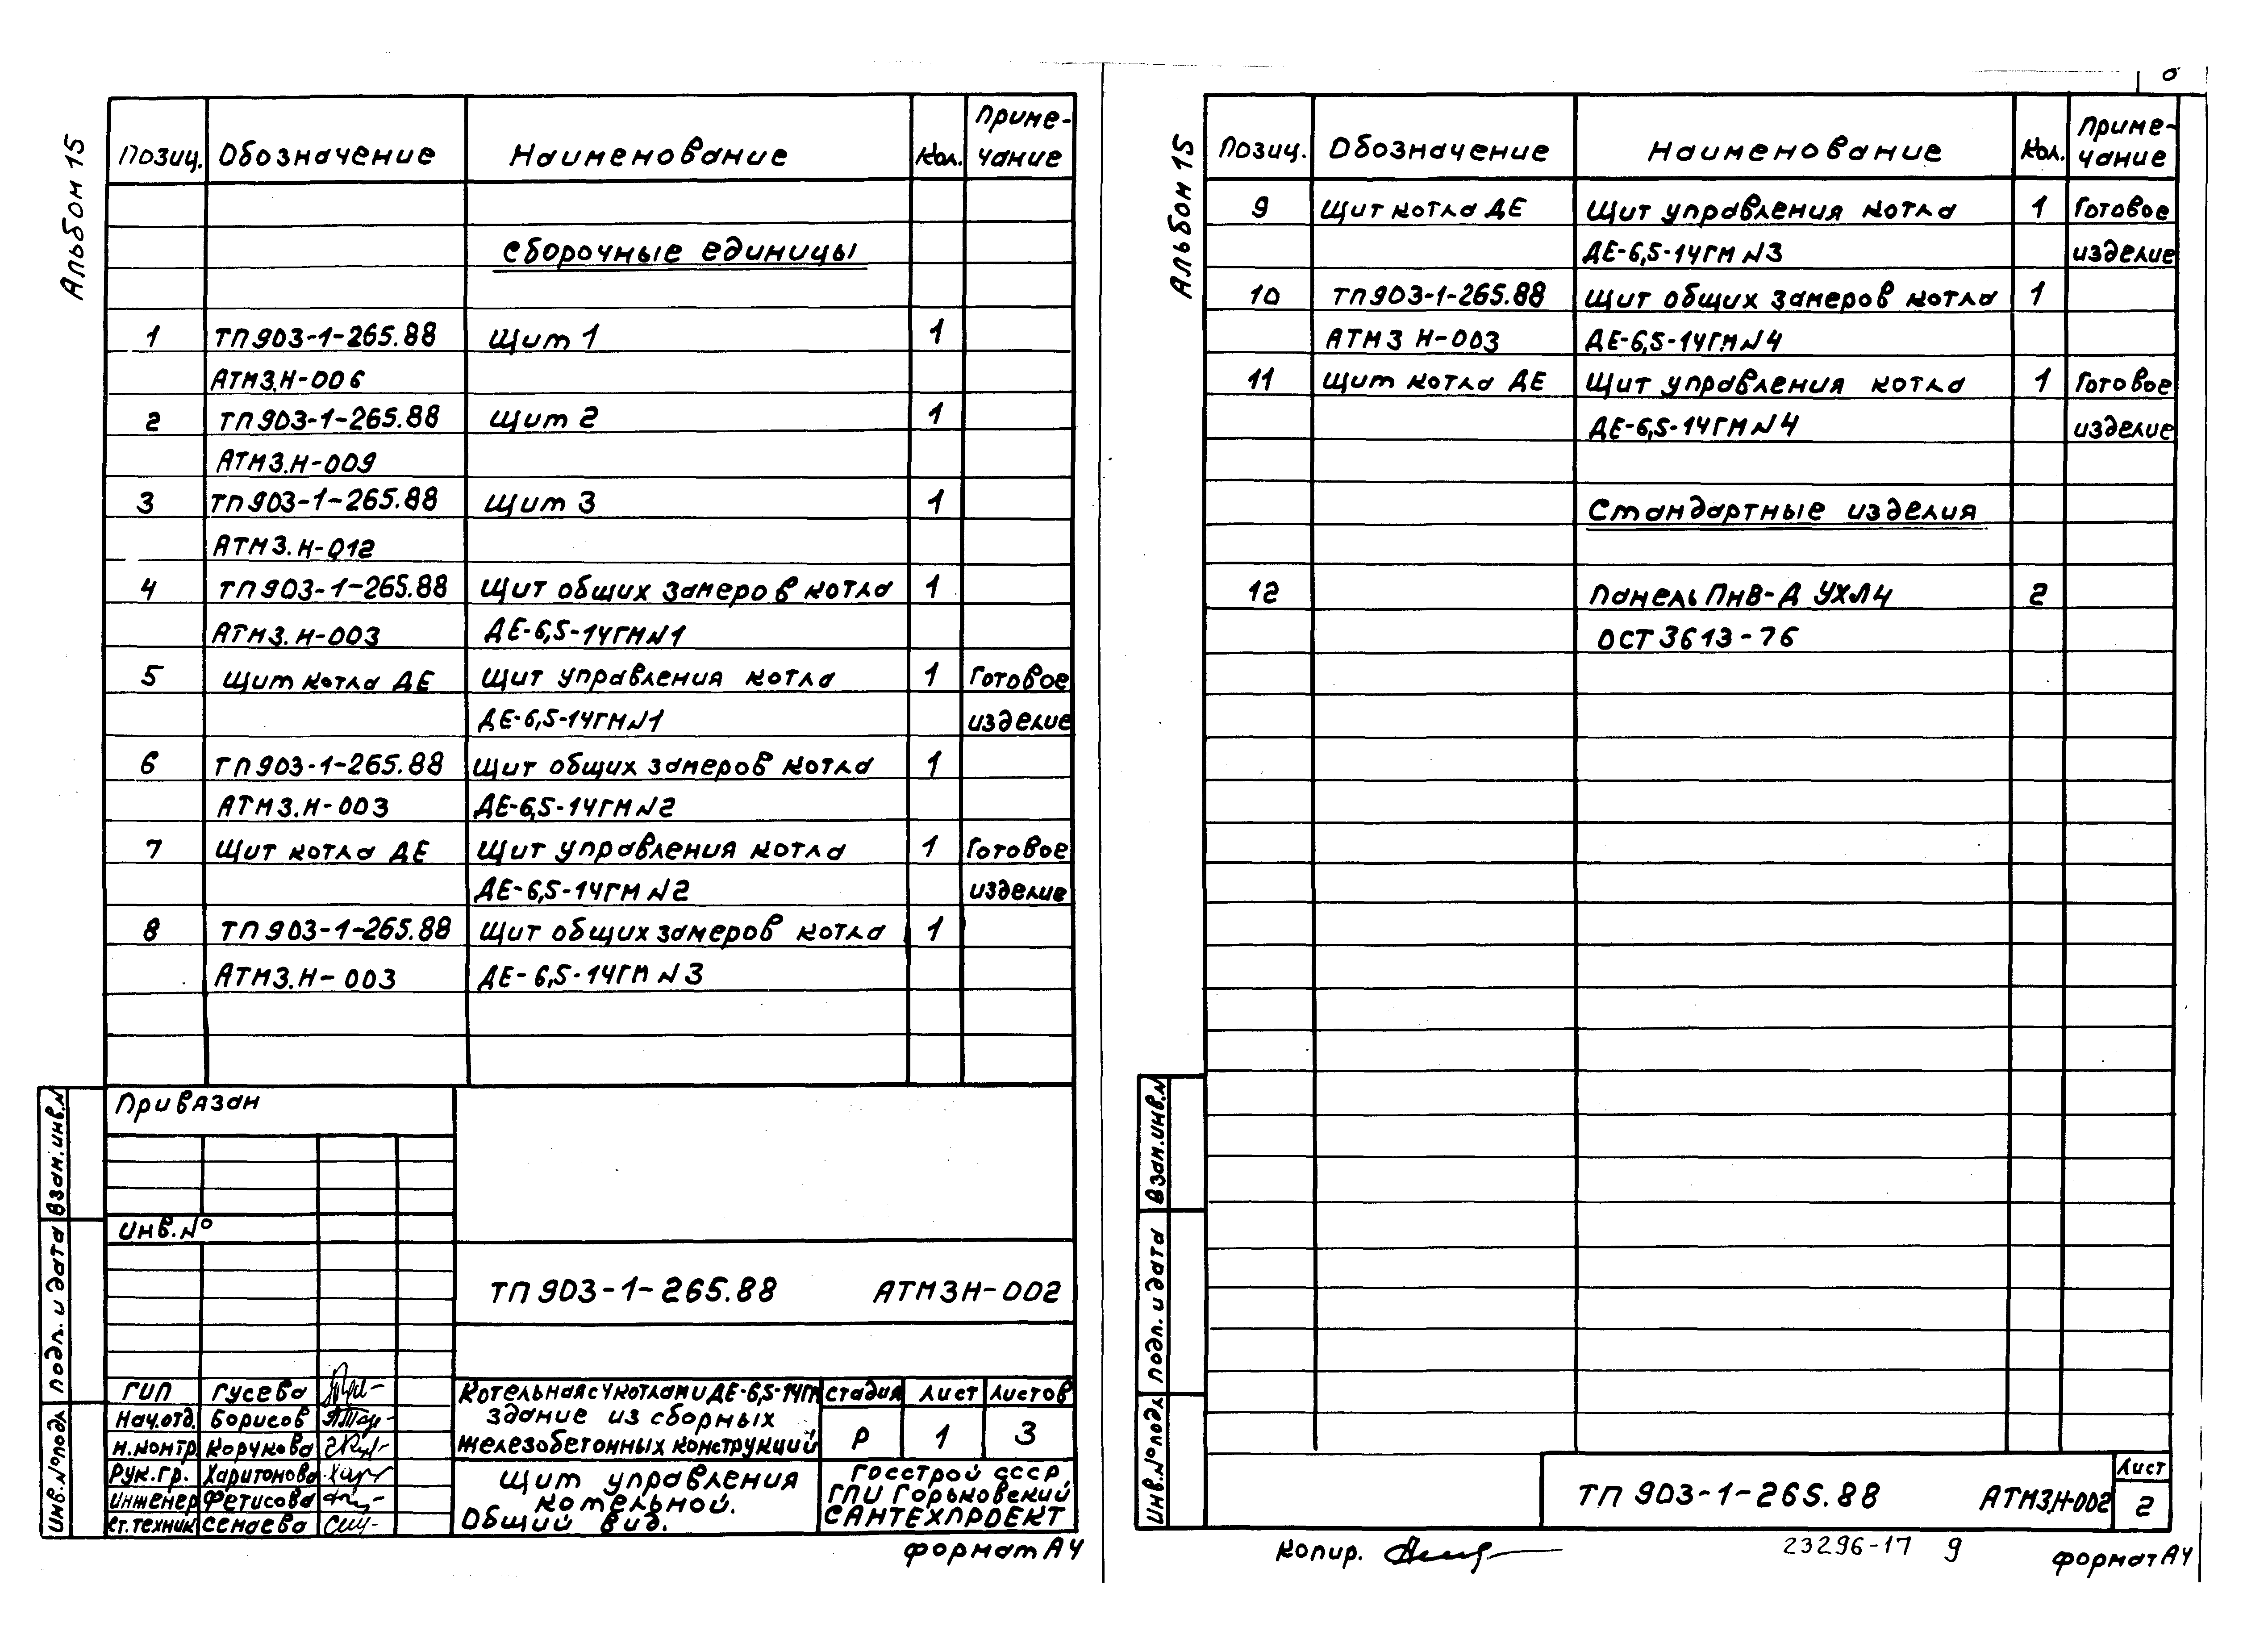 Альбом 15
Позиц. Обозначение Наименование Кол. Приме-
чание
Сборочные единицы
1 ТП903-1-265.88 Щит 1 1
АТМ3.Н-006
2 ТП903-1-265.88 Щит 2 1
АТМ3.Н-009
3 ТП903-1-265.88 Щит 3 1
АТМ3.Н-012
4 ТП903-1-265.88 Щит общих замеров котла 1
АТМ3.Н-003 ДЕ-6,5-14ГМ N1
5 Щит котла ДЕ Щит управления котла 1 Готовое
ДЕ-6,5-14ГМ N1 изделие
6 ТП903-1-265.88 Щит общих замеров котла 1
АТМ3.Н-003 ДЕ-6,5-14ГМ N2
7 Щит котла ДЕ Щит управления котла 1 Готовое
ДЕ-6,5-14ГМ N2 изделие
8 ТП903-1-265.88 Щит общих замеров котла 1
АТМ3.Н-003 ДЕ-6,5-14ГМ N3
Привязан
Инв.№
ТП 903-1-265.88 АТМ3Н-002
ГИП Гусева
Нач.отд. Борисов
Н.контр Корукова
Рук.гр. Харитонова
Инженер Фетисова
Ст.техник Семаева
Котельная с 4 котлами ДЕ-6,5-14ГМ
здание из сборных
железобетонных конструкций
Стадия Лист Листов
Р 1 3
Щит управления
котельной.
Общий вид.
Госстрой СССР
ГПИ Горьковский
САНТЕХПРОЕКТ
Взам.инв.N
Подп. и дата
Инв.№подл
формат А4
Альбом 15
Позиц. Обозначение Наименование Кол. Приме-
чание
9 Щит котла ДЕ Щит управления котла 1 Готовое
ДЕ-6,5-14ГМ N3 изделие
10 ТП903-1-265.88 Щит общих замеров котла 1
АТМ3 Н-003 ДЕ-6,5-14ГМ N4
11 Щит котла ДЕ Щит управления котла 1 Готовое
ДЕ-6,5-14ГМ N4 изделие
Стандартные изделия
12 Панель ПнВ-Д УХЛ4 2
ОСТ 3613-76
Взам.инв.N
Подп. и дата
Инв.№подл
ТП 903-1-265.88 АТМ3.Н-002
Лист
2
Копир.
23296-17 9
формат А4